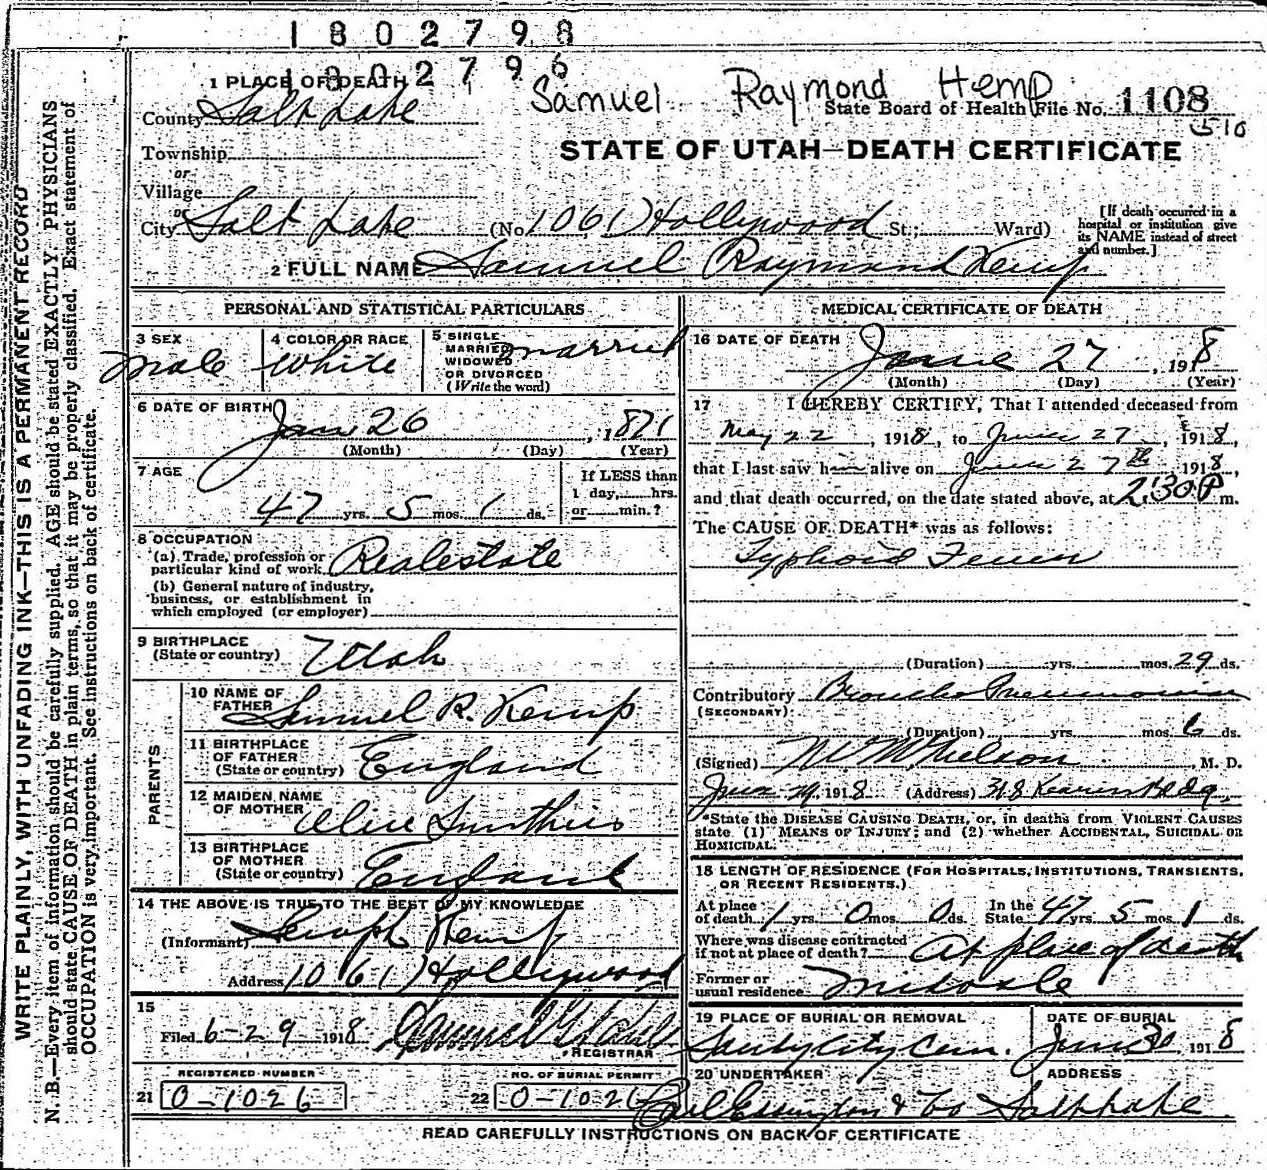 1802798
1802796
Samuel Raymond Hemp
1 PLACE OF DEATH
State Board of Health File No. 1108
510
County Salt Lake
STATE OF UTAH—DEATH CERTIFICATE
Township
or
Village
or
City Salt Lake (No 1061 Hollywood St.; Ward)
[If death occurred in a hospital or institution give its NAME instead of street and number.]
2 FULL NAME Samuel Raymond Kemp
PERSONAL AND STATISTICAL PARTICULARS
3 SEX male
4 COLOR OR RACE White
5 SINGLE MARRIED WIDOWED OR DIVORCED (Write the word) married
6 DATE OF BIRTH Jan 26, 1871
(Month) (Day) (Year)
7 AGE 47 yrs. 5 mos. 1 ds.
If LESS than 1 day, hrs. or min.?
8 OCCUPATION
(a) Trade, profession or particular kind of work Realestate
(b) General nature of industry, business, or establishment in which employed (or employer)
9 BIRTHPLACE (State or country) Utah
PARENTS
10 NAME OF FATHER Samuel R. Kemp
11 BIRTHPLACE OF FATHER (State or country) England
12 MAIDEN NAME OF MOTHER Alice
13 BIRTHPLACE OF MOTHER (State or country) England
14 THE ABOVE IS TRUE TO THE BEST OF MY KNOWLEDGE
(Informant) Kemp
Address 1061 Hollywood
15 Filed 6-29 1918
REGISTRAR
REGISTERED NUMBER
21 0-1026
NO. OF BURIAL PERMIT
22 0-1026
MEDICAL CERTIFICATE OF DEATH
16 DATE OF DEATH June 27, 1918
(Month) (Day) (Year)
17 I HEREBY CERTIFY, That I attended deceased from
May 22, 1918, to June 27, 1918,
that I last saw him alive on June 27th, 1918,
and that death occurred, on the date stated above, at 2:30 P m.
The CAUSE OF DEATH* was as follows:
Typhoid Fever
(Duration) yrs. mos. 29 ds.
Contributory (SECONDARY) Broncho Pneumonia
(Duration) yrs. mos. 6 ds.
(Signed) W M Nelson, M. D.
June 29 1918 (Address) 318 Kearns Bldg.
*State the DISEASE CAUSING DEATH, or, in deaths from VIOLENT CAUSES state (1) MEANS OF INJURY; and (2) whether ACCIDENTAL, SUICIDAL OR HOMICIDAL.
18 LENGTH OF RESIDENCE (FOR HOSPITALS, INSTITUTIONS, TRANSIENTS, OR RECENT RESIDENTS.)
At place of death 1 yrs. 0 mos. 0 ds. In the State 47 yrs. 5 mos. 1 ds.
Where was disease contracted if not at place of death? At place of death
Former or usual residence Midvale
19 PLACE OF BURIAL OR REMOVAL Sandy City Cem.
DATE OF BURIAL June 30 1918
20 UNDERTAKER & Co
ADDRESS Salt Lake
READ CAREFULLY INSTRUCTIONS ON BACK OF CERTIFICATE
WRITE PLAINLY, WITH UNFADING INK—THIS IS A PERMANENT RECORD
N. B.—Every item of information should be carefully supplied. AGE should be stated EXACTLY. PHYSICIANS
should state CAUSE OF DEATH in plain terms, so that it may be properly classified. Exact statement of
OCCUPATION is very important. See instructions on back of certificate.